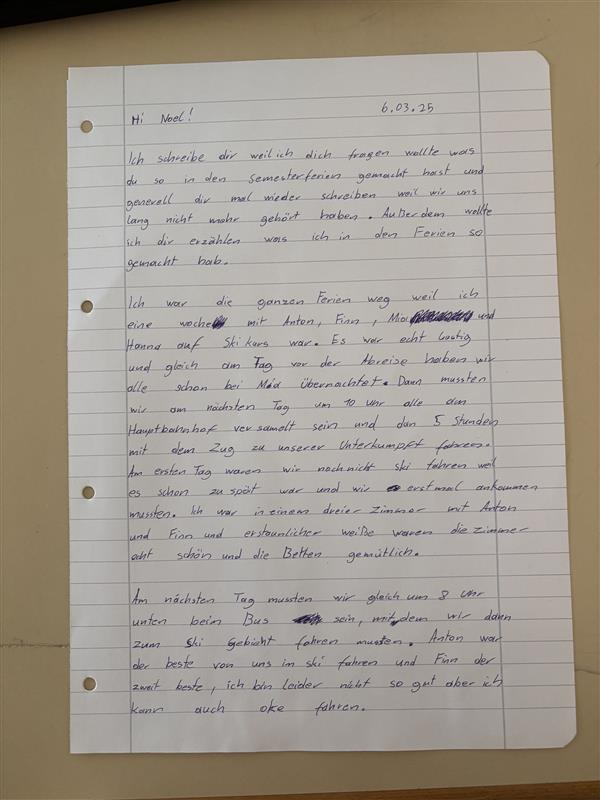 Hi Noel! 6.03.25
Ich schreibe dir weil ich dich fragen wollte was
du so in den Semesterferien gemacht hast und
generell dir mal wieder schreiben weil wir uns
lang nicht mehr gehört haben. Außerdem wollte
ich dir erzählen was ich in den Ferien so
gemacht hab.
Ich war die ganzen Ferien weg weil ich
eine woche mit Anton, Finn, Mia und
Hanna auf Skikurs war. Es war echt lustig
und gleich am Tag vor der Abreise haben wir
alle schon bei Mia übernachtet. Dann mussten
wir am nächsten Tag um 10 Uhr alle am
Hauptbahnhof versamelt sein und dan 5 Stunden
mit dem Zug zu unserer Unterkumpft fahren.
Am ersten Tag waren wir noch nicht ski fahren weil
es schon zu spät war und wir erstmal ankommen
mussten. Ich war in einem dreier Zimmer mit Anton
und Finn und erstaunlicher weiße waren die zimmer
echt schön und die Betten gemütlich.
Am nächsten Tag mussten wir gleich um 8 Uhr
unten beim Bus sein, mit dem wir dann
zum Ski Gebicht fahren mussten. Anton war
der beste von uns im ski fahren und Finn der
zweit beste, ich bin leider nicht so gut aber ich
kann auch oke fahren.